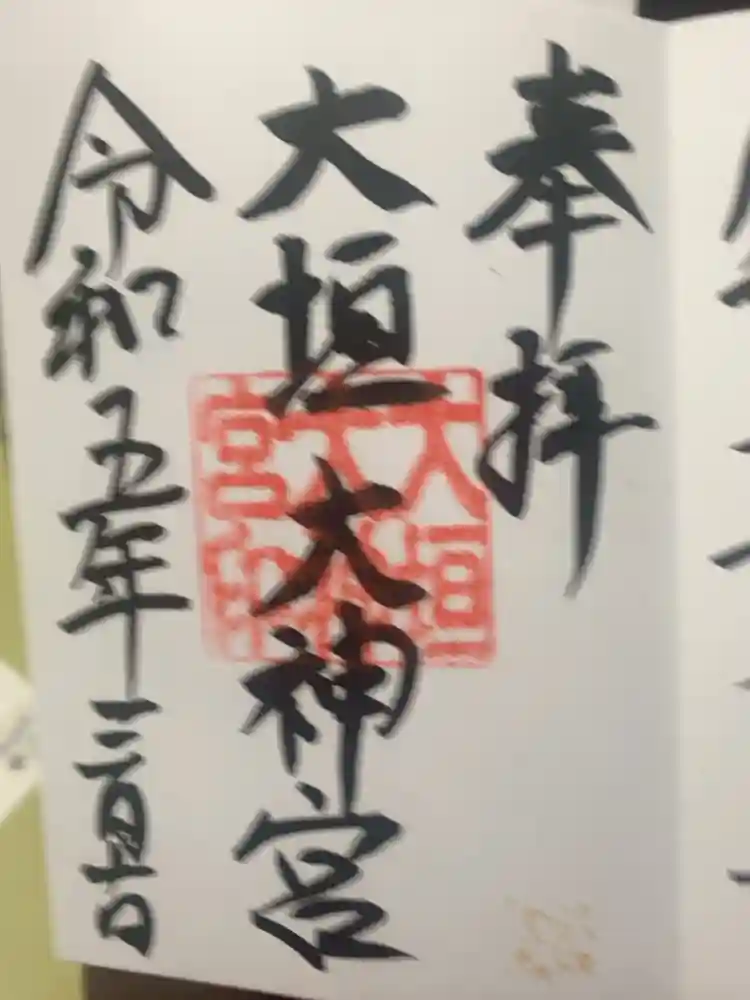 奉拝
大垣大神宮
大垣大神宮印
令和五年